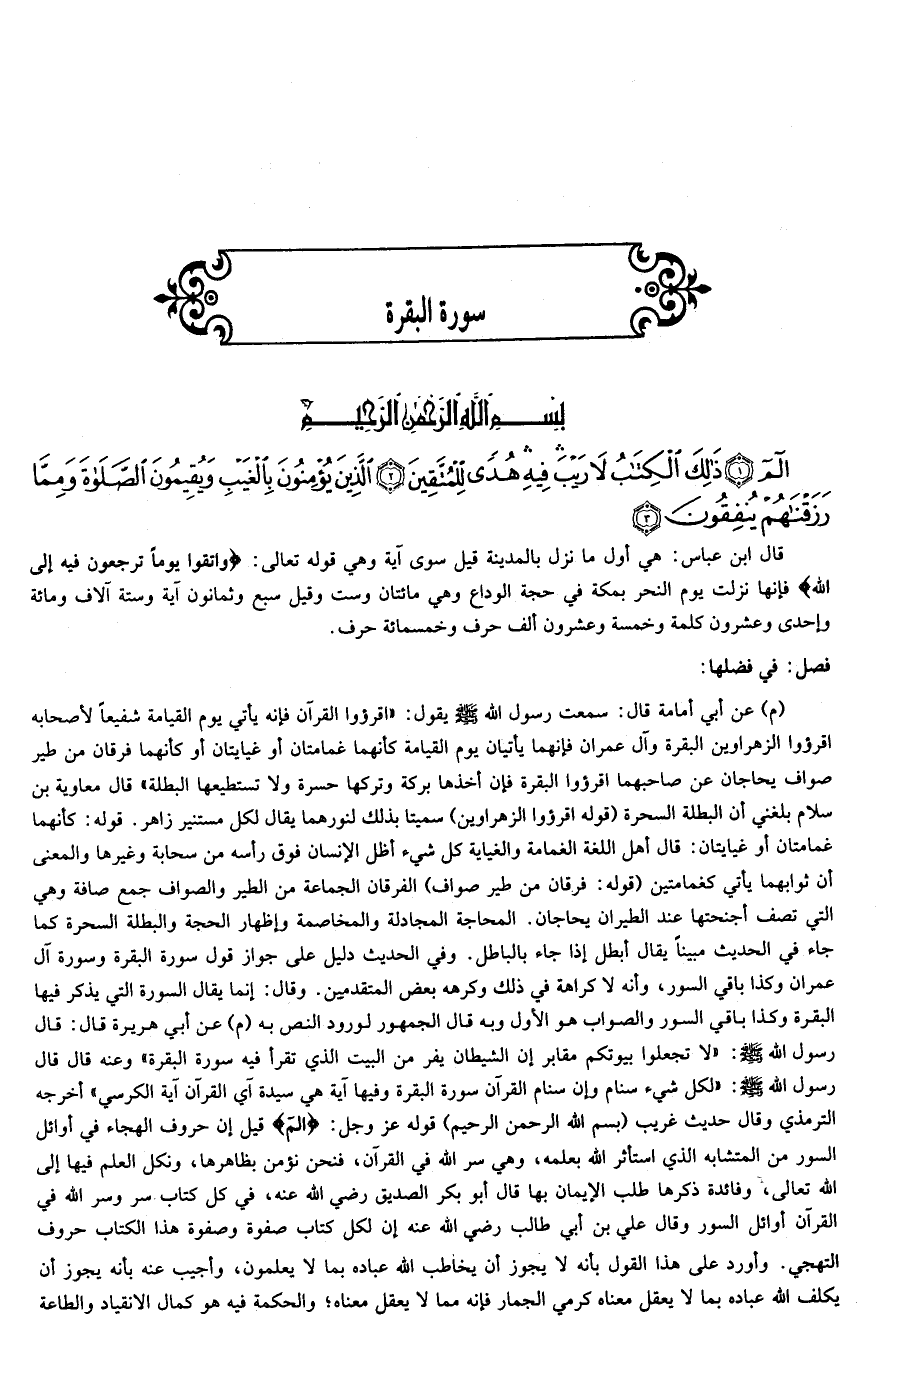 سورة البقرة
بسم الله الرحمن الرحيم
الٓمٓ ١ ذَٰلِكَ ٱلْكِتَٰبُ لَا رَيْبَ ۛ فِيهِ ۛ هُدًى لِّلْمُتَّقِينَ ٢ ٱلَّذِينَ يُؤْمِنُونَ بِٱلْغَيْبِ وَيُقِيمُونَ ٱلصَّلَوٰةَ وَمِمَّا
رَزَقْنَٰهُمْ يُنفِقُونَ ٣
قال ابن عباس: هي أول ما نزل بالمدينة قيل سوى آية وهي قوله تعالى: ﴿واتقوا يوماً ترجعون فيه إلى
الله﴾ فإنها نزلت يوم النحر بمكة في حجة الوداع وهي مائتان وست وقيل سبع وثمانون آية وستة آلاف ومائة
وإحدى وعشرون كلمة وخمسة وعشرون ألف حرف وخمسمائة حرف.
فصل: في فضلها:
(م) عن أبي أمامة قال: سمعت رسول الله ﷺ يقول: «اقرؤوا القرآن فإنه يأتي يوم القيامة شفيعاً لأصحابه
اقرؤوا الزهراوين البقرة وآل عمران فإنهما يأتيان يوم القيامة كأنهما غمامتان أو غيايتان أو كأنهما فرقان من طير
صواف يحاجان عن صاحبهما اقرؤوا البقرة فإن أخذها بركة وتركها حسرة ولا تستطيعها البطلة» قال معاوية بن
سلام بلغني أن البطلة السحرة (قوله اقرؤوا الزهراوين) سميتا بذلك لنورهما يقال لكل مستنير زاهر. قوله: كأنهما
غمامتان أو غيايتان: قال أهل اللغة الغمامة والغياية كل شيء أظل الإنسان فوق رأسه من سحابة وغيرها والمعنى
أن ثوابهما يأتي كغمامتين (قوله: فرقان من طير صواف) الفرقان الجماعة من الطير والصواف جمع صافة وهي
التي تصف أجنحتها عند الطيران يحاجان. المحاجة المجادلة والمخاصمة وإظهار الحجة والبطلة السحرة كما
جاء في الحديث مبيناً يقال أبطل إذا جاء بالباطل. وفي الحديث دليل على جواز قول سورة البقرة وسورة آل
عمران وكذا باقي السور، وأنه لا كراهة في ذلك وكرهه بعض المتقدمين. وقال: إنما يقال السورة التي يذكر فيها
البقرة وكذا باقي السور والصواب هو الأول وبه قال الجمهور لورود النص به (م) عن أبي هريرة قال: قال
رسول الله ﷺ: «لا تجعلوا بيوتكم مقابر إن الشيطان يفر من البيت الذي تقرأ فيه سورة البقرة» وعنه قال قال
رسول الله ﷺ: «لكل شيء سنام وإن سنام القرآن سورة البقرة وفيها آية هي سيدة آي القرآن آية الكرسي» أخرجه
الترمذي وقال حديث غريب (بسم الله الرحمن الرحيم) قوله عز وجل: ﴿الم﴾ قيل إن حروف الهجاء في أوائل
السور من المتشابه الذي استأثر الله بعلمه، وهي سر الله في القرآن، فنحن نؤمن بظاهرها، ونكل العلم فيها إلى
الله تعالى، وفائدة ذكرها طلب الإيمان بها قال أبو بكر الصديق رضي الله عنه، في كل كتاب سر وسر الله في
القرآن أوائل السور وقال علي بن أبي طالب رضي الله عنه إن لكل كتاب صفوة وصفوة هذا الكتاب حروف
التهجي. وأورد على هذا القول بأنه لا يجوز أن يخاطب الله عباده بما لا يعلمون، وأجيب عنه بأنه يجوز أن
يكلف الله عباده بما لا يعقل معناه كرمي الجمار فإنه مما لا يعقل معناه؛ والحكمة فيه هو كمال الانقياد والطاعة